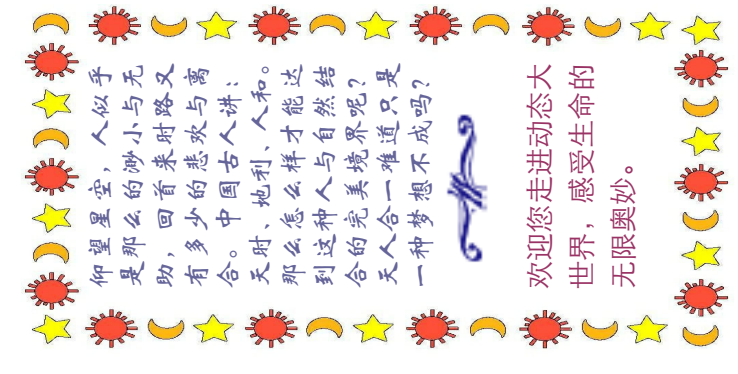 仰望星空，人似乎
是那么的渺小与无
助，回首来时路又
有多少的悲欢与离
合。中国古人讲：
天时、地利、人和。
那么怎么样才能达
到这种人与自然结
合的完美境界呢？
天人合一难道只是
一种梦想不成吗？
欢迎您走进动态大
世界，感受生命的
无限奥妙。